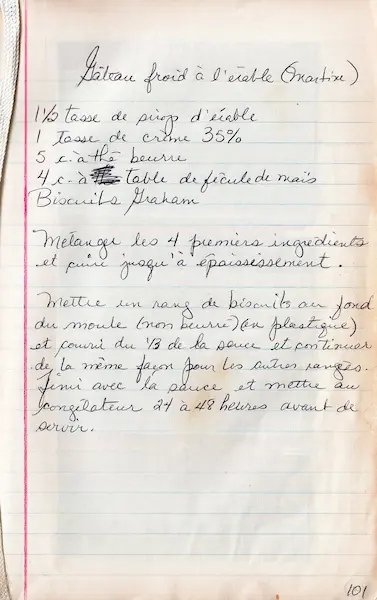 Gâteau froid à l'érable (Martine)
1 1/3 tasse de sirop d'érable
1 tasse de crème 35%
5 c. à thé beurre
4 c. à table de fécule de maïs
Biscuits Graham
Mélanger les 4 premiers ingrédients
et cuire jusqu'à épaississement.
Mettre un rang de biscuits au fond
du moule (non beurré) (en plastique)
et couvrir du 1/3 de la sauce et continuer
de la même façon pour les autres rangés.
Finir avec la sauce et mettre au
congélateur 24 à 48 heures avant de
servir.
101